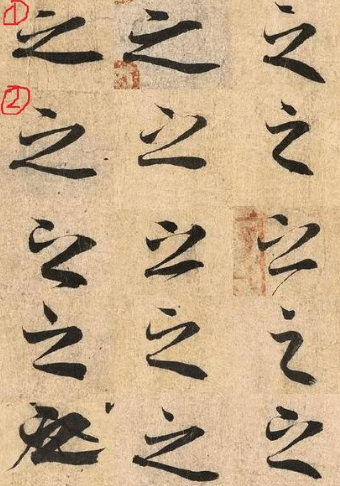 ① 之 之 之
② 之 之 之
之 之 之
之 之 之
之 之 之